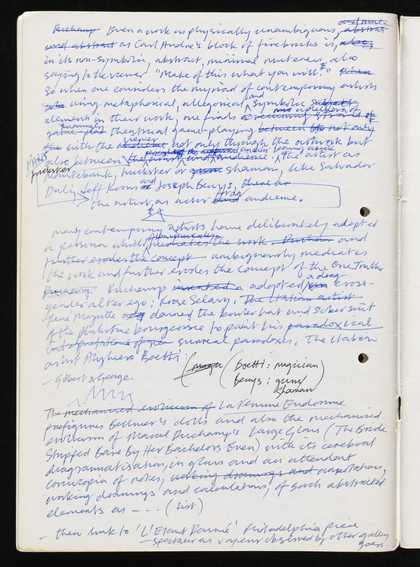 Duchamp Even a work as physically unambiguous, abstract
and abstract as Carl Andre's block of firebricks is, also
in its non-symbolic, abstract, minimal muteness, also
saying to the viewer "Make of this what you will."
So when one considers the myriad of contemporary artists
who using metaphorical, allegorical and symbolic subject
element in their work, one finds a
game-play theatrical game-playing between not only
with the viewer not only through the artwork but
also between the artist and audience. The artist as
prankster
mountebank, huckster or shaman, like Salvador
Dali, Jeff Koons and Joseph Beuys,
the artist as actor and audience.
many contemporary artists have deliberately adopted
a persona which mediates the work and
further erodes the concept ambiguously mediates
the work and further erodes the concept of the One Truth
Duchamp created adopted a cross-
gender alter ego: Rose Selavy. The Italian artist
Rene Magritte donned the bowler hat and sober suit
of the philistine bourgeoisie to paint his paradoxical
interpretations of surreal paradoxes. The Italian
artist Alighiero Boetti
- Gilbert & George
(Boetti: magician)
Beuys: guru
shaman
The mechanised eroticism of La Femme Endormie
prefigures Bellmer's dolls and also the mechanised
eroticism of Marcel Duchamp's Large Glass (The Bride
Stripped Bare by Her Bachelors Even) with its cerebral
diagrammatisation, in glass and an attendant
cornucopia of notes, working drawings and
working drawings and calculations, of such abstracted
elements as - - - (list)
- then link to 'L'Etant Donné' Philadelphia piece
- spectator as voyeur observed by other gallery
goers